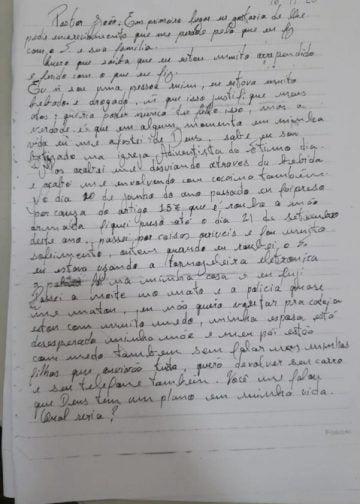 Pastor João. Em primeiro lugar eu gostaria de lhe
pedir encarecidamente que me perdoe pelo que eu fiz
com o S. e sua família.
Quero que saiba que eu estou muito arrependido
e lendo com o que eu fiz.
Eu ñ sou uma pessoa ruim, eu estava muito
bebado e drogado, ñ que isso justifique meus
atos; queria poder nunca ter feito isso, mas a
verdade é que em algum momento em minha
vida eu me afastei de Deus, sabe eu sou
batizado na igreja Adventista do Sétimo dia.
Mas acabei me desviando através da bebida
e acabei me envolvendo com cocaína também.
No dia 20 de junho do ano passado eu foi preso
por causa do artigo 157 que é roubo a mão
armada fiquei preso até o dia 21 de setembro
deste ano, passei por coisas horríveis e foi muito
sofrimento, ontem quando eu roubei o S.
eu estava usando a tornozeleira eletronica
a foi na minha casa e eu fugi
Passei a noite no mato e a policia quase
me matou, eu não quero voltar pra cadeia
estou com muito medo, minha esposa está
desesperada minha mãe e meu pai estão
com medo também sem falar nas minhas
filhas que ouviram tudo, quero devolver seu carro
e seu telefone também. Você me falou
que Deus tem um plano em minha vida.
Qual seria?